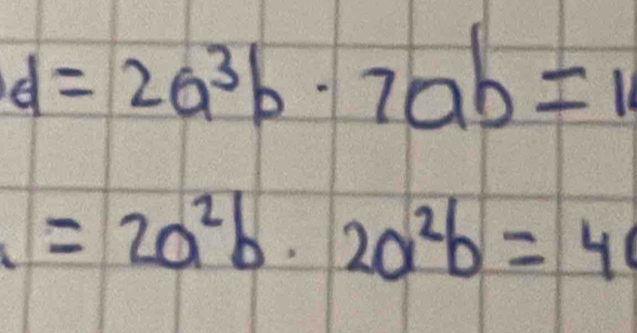 d = 2a³b · 7ab = 1
= 2a²b · 2a²b = 4